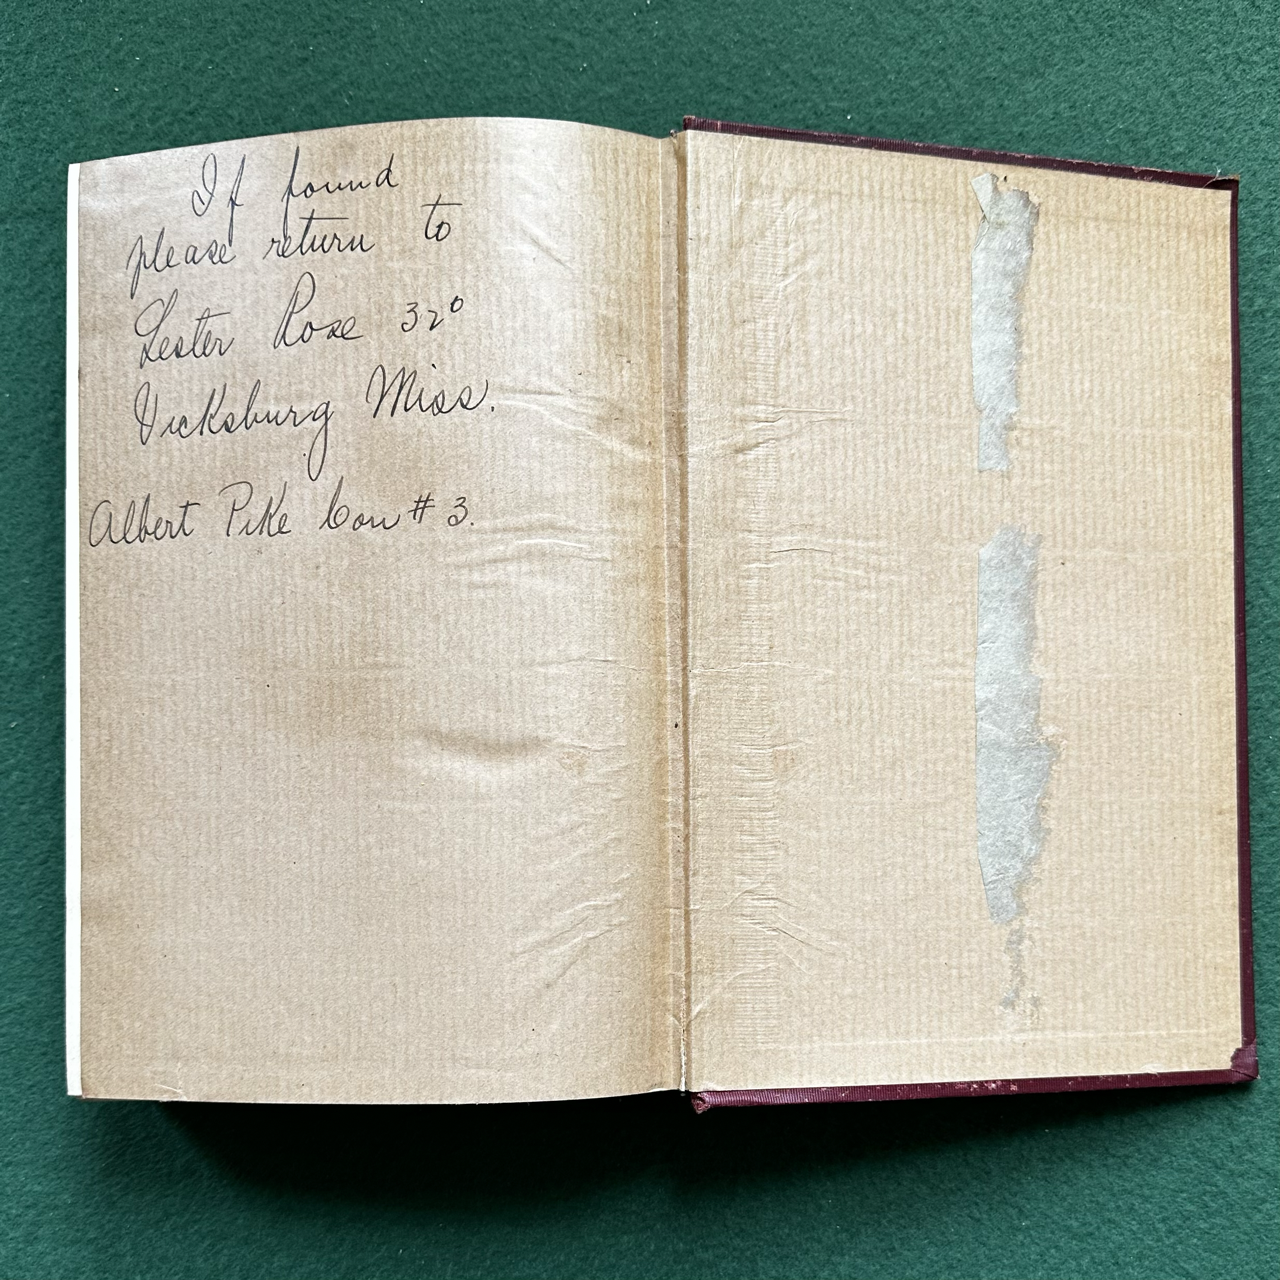 If found
please return to
Lester Rose 32°
Vicksburg Miss.
Albert Pike Con # 3.